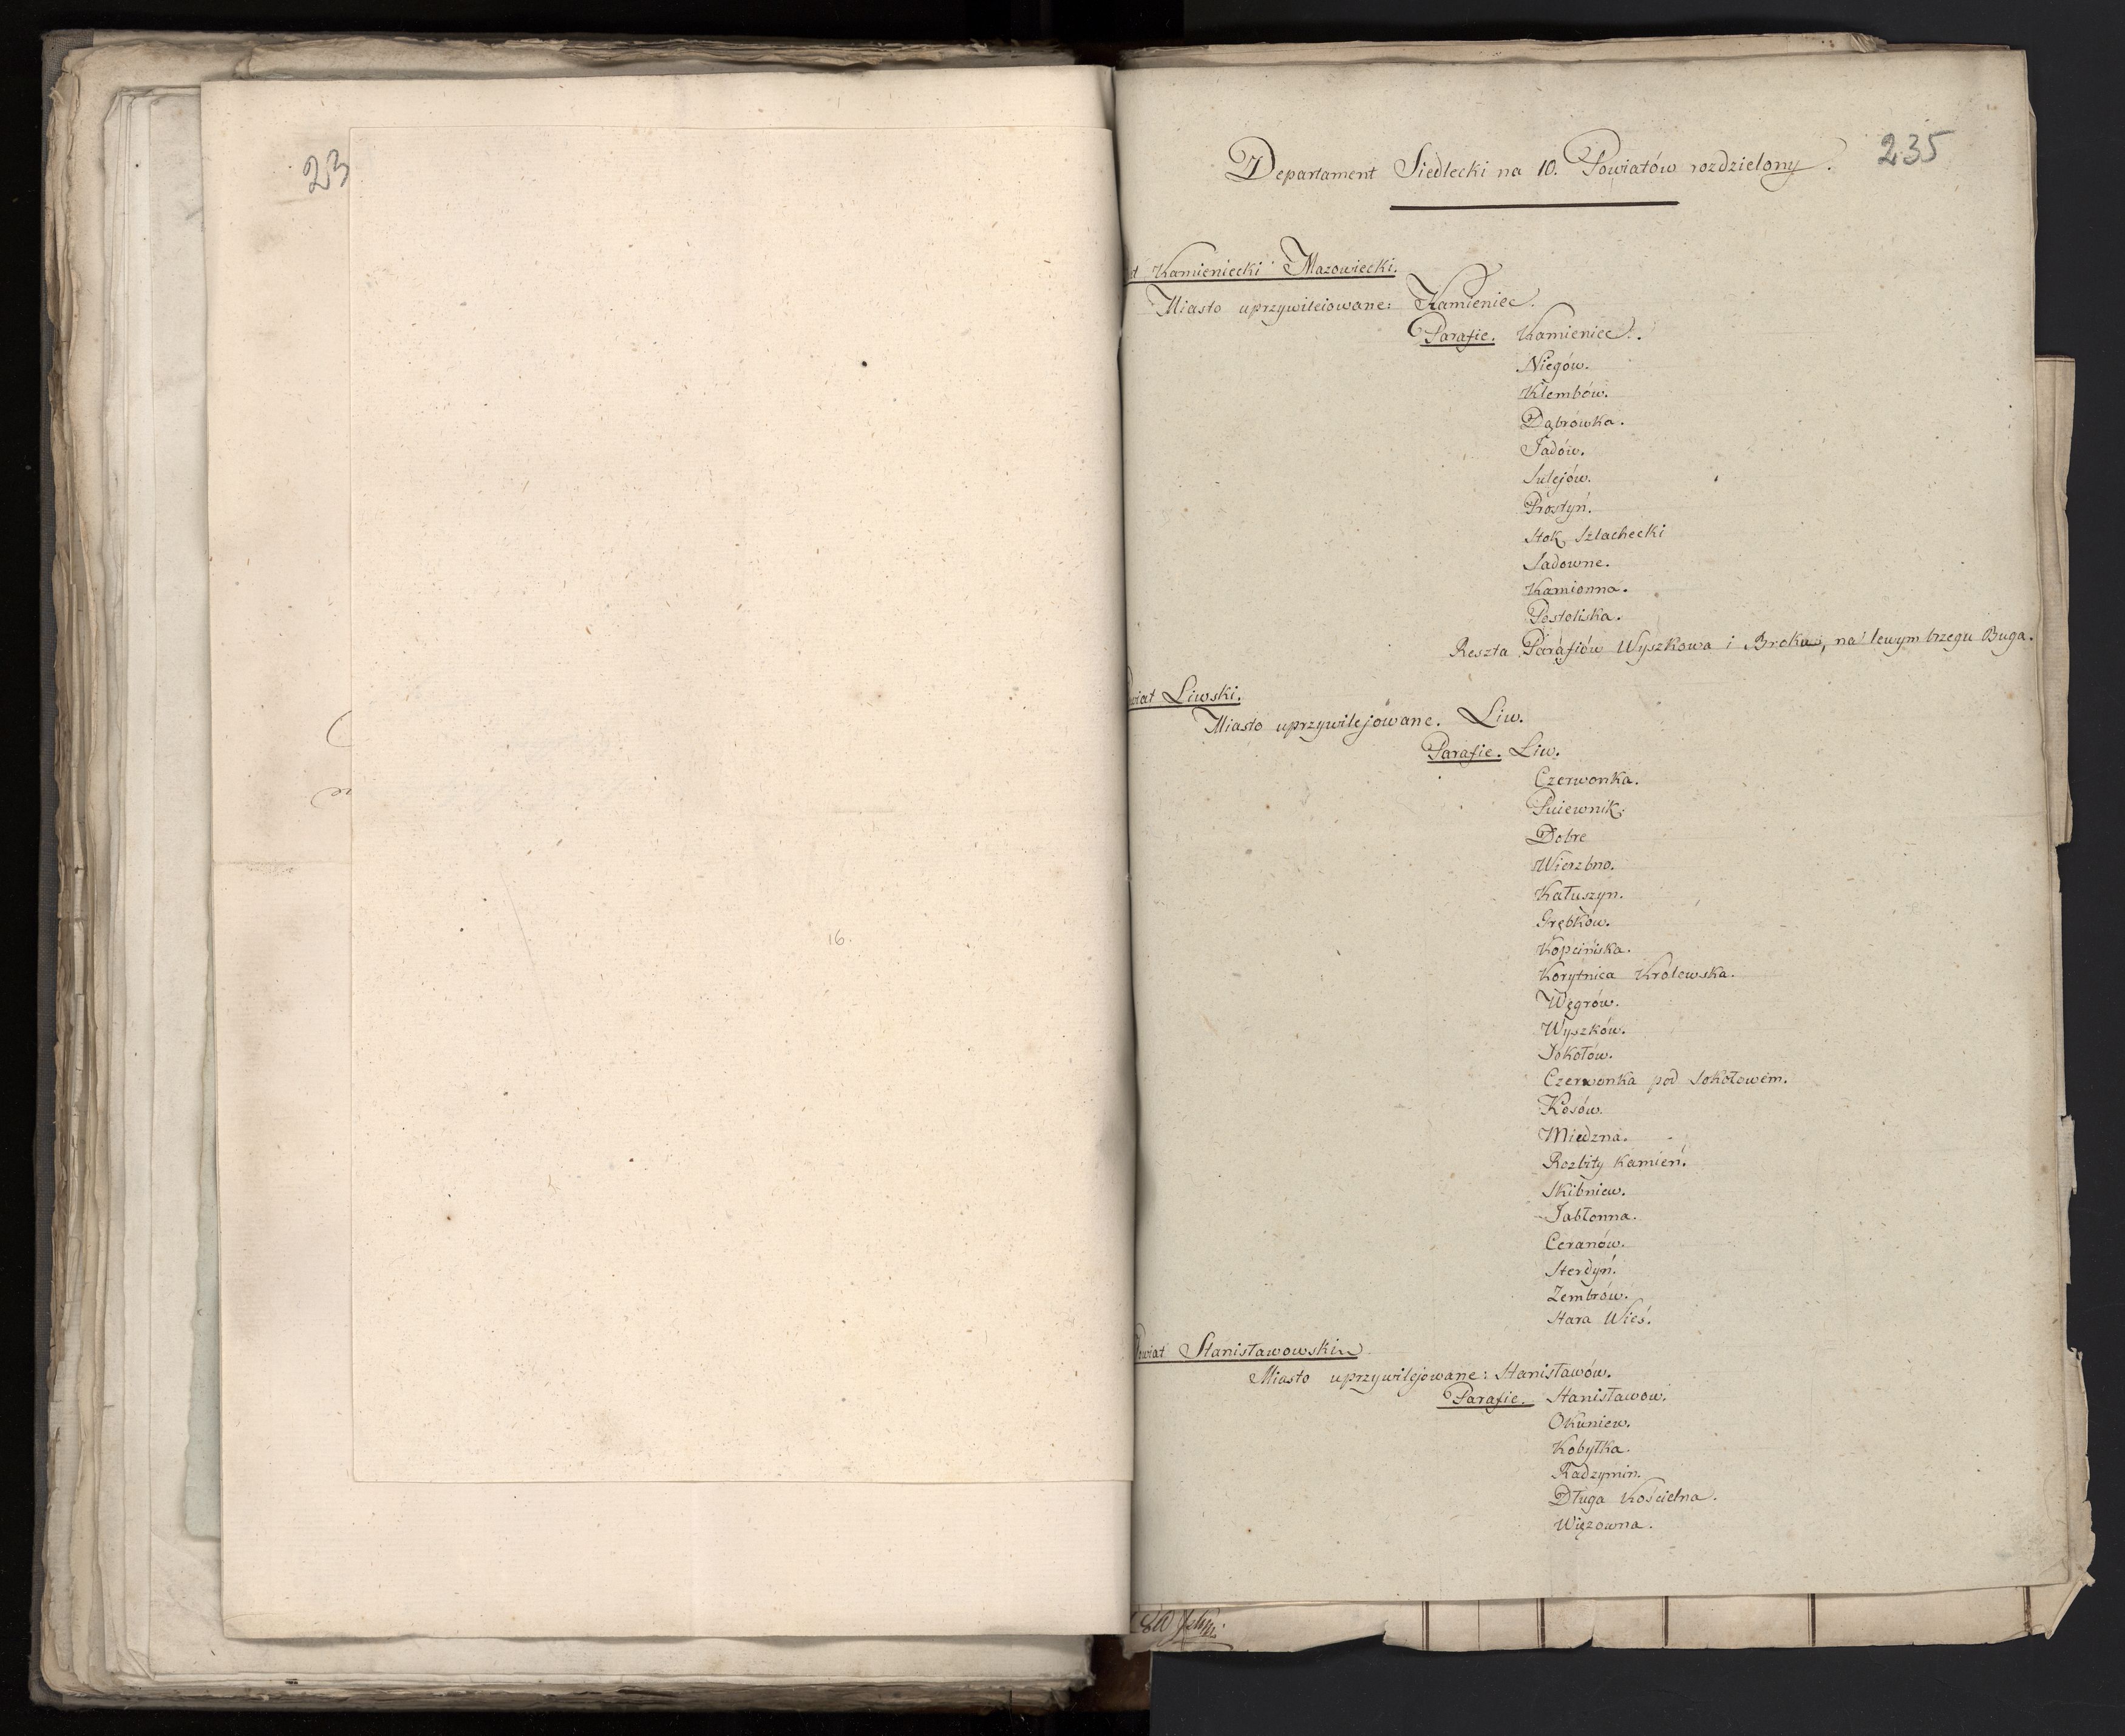 23
16.
235
Departament Siedlecki na 10. Powiatów rozdzielony.
Kamieniecki Mazowiecki.
Miasto uprzywileiowane: Kamieniec.
Parafie. Kamieniec.
Niegów.
Klembów.
Dąbrówka.
Jadów.
Sulejów.
Prostyń.
Stok Szlachecki
Sadowne.
Kamionna.
Postoliska.
Reszta Parafiów Wyszkowa i Broka, na lewym brzegu Buga.
wiat Liwski.
Miasto uprzywilejowane. Liw.
Parafie. Liw.
Czerwonka.
Pniewnik.
Dobre
Wierzbno.
Kałuszyn.
Grębków.
Kopcińska.
Korytnica Królewska.
Węgrów.
Wyszków.
Sokołów.
Czerwonka pod Sokołowem.
Kosów.
Miedzna.
Rozbity Kamień.
Skibniew.
Jabłonna.
Ceranów.
Sterdyń.
Zembrów.
Stara Wieś.
owiat Stanisławowski
Miasto uprzywilejowane: Stanisławów.
Parafie. Stanisławow.
Okuniew.
Kobyłka.
Radzymin.
Długa Kościelna.
Więzowna.